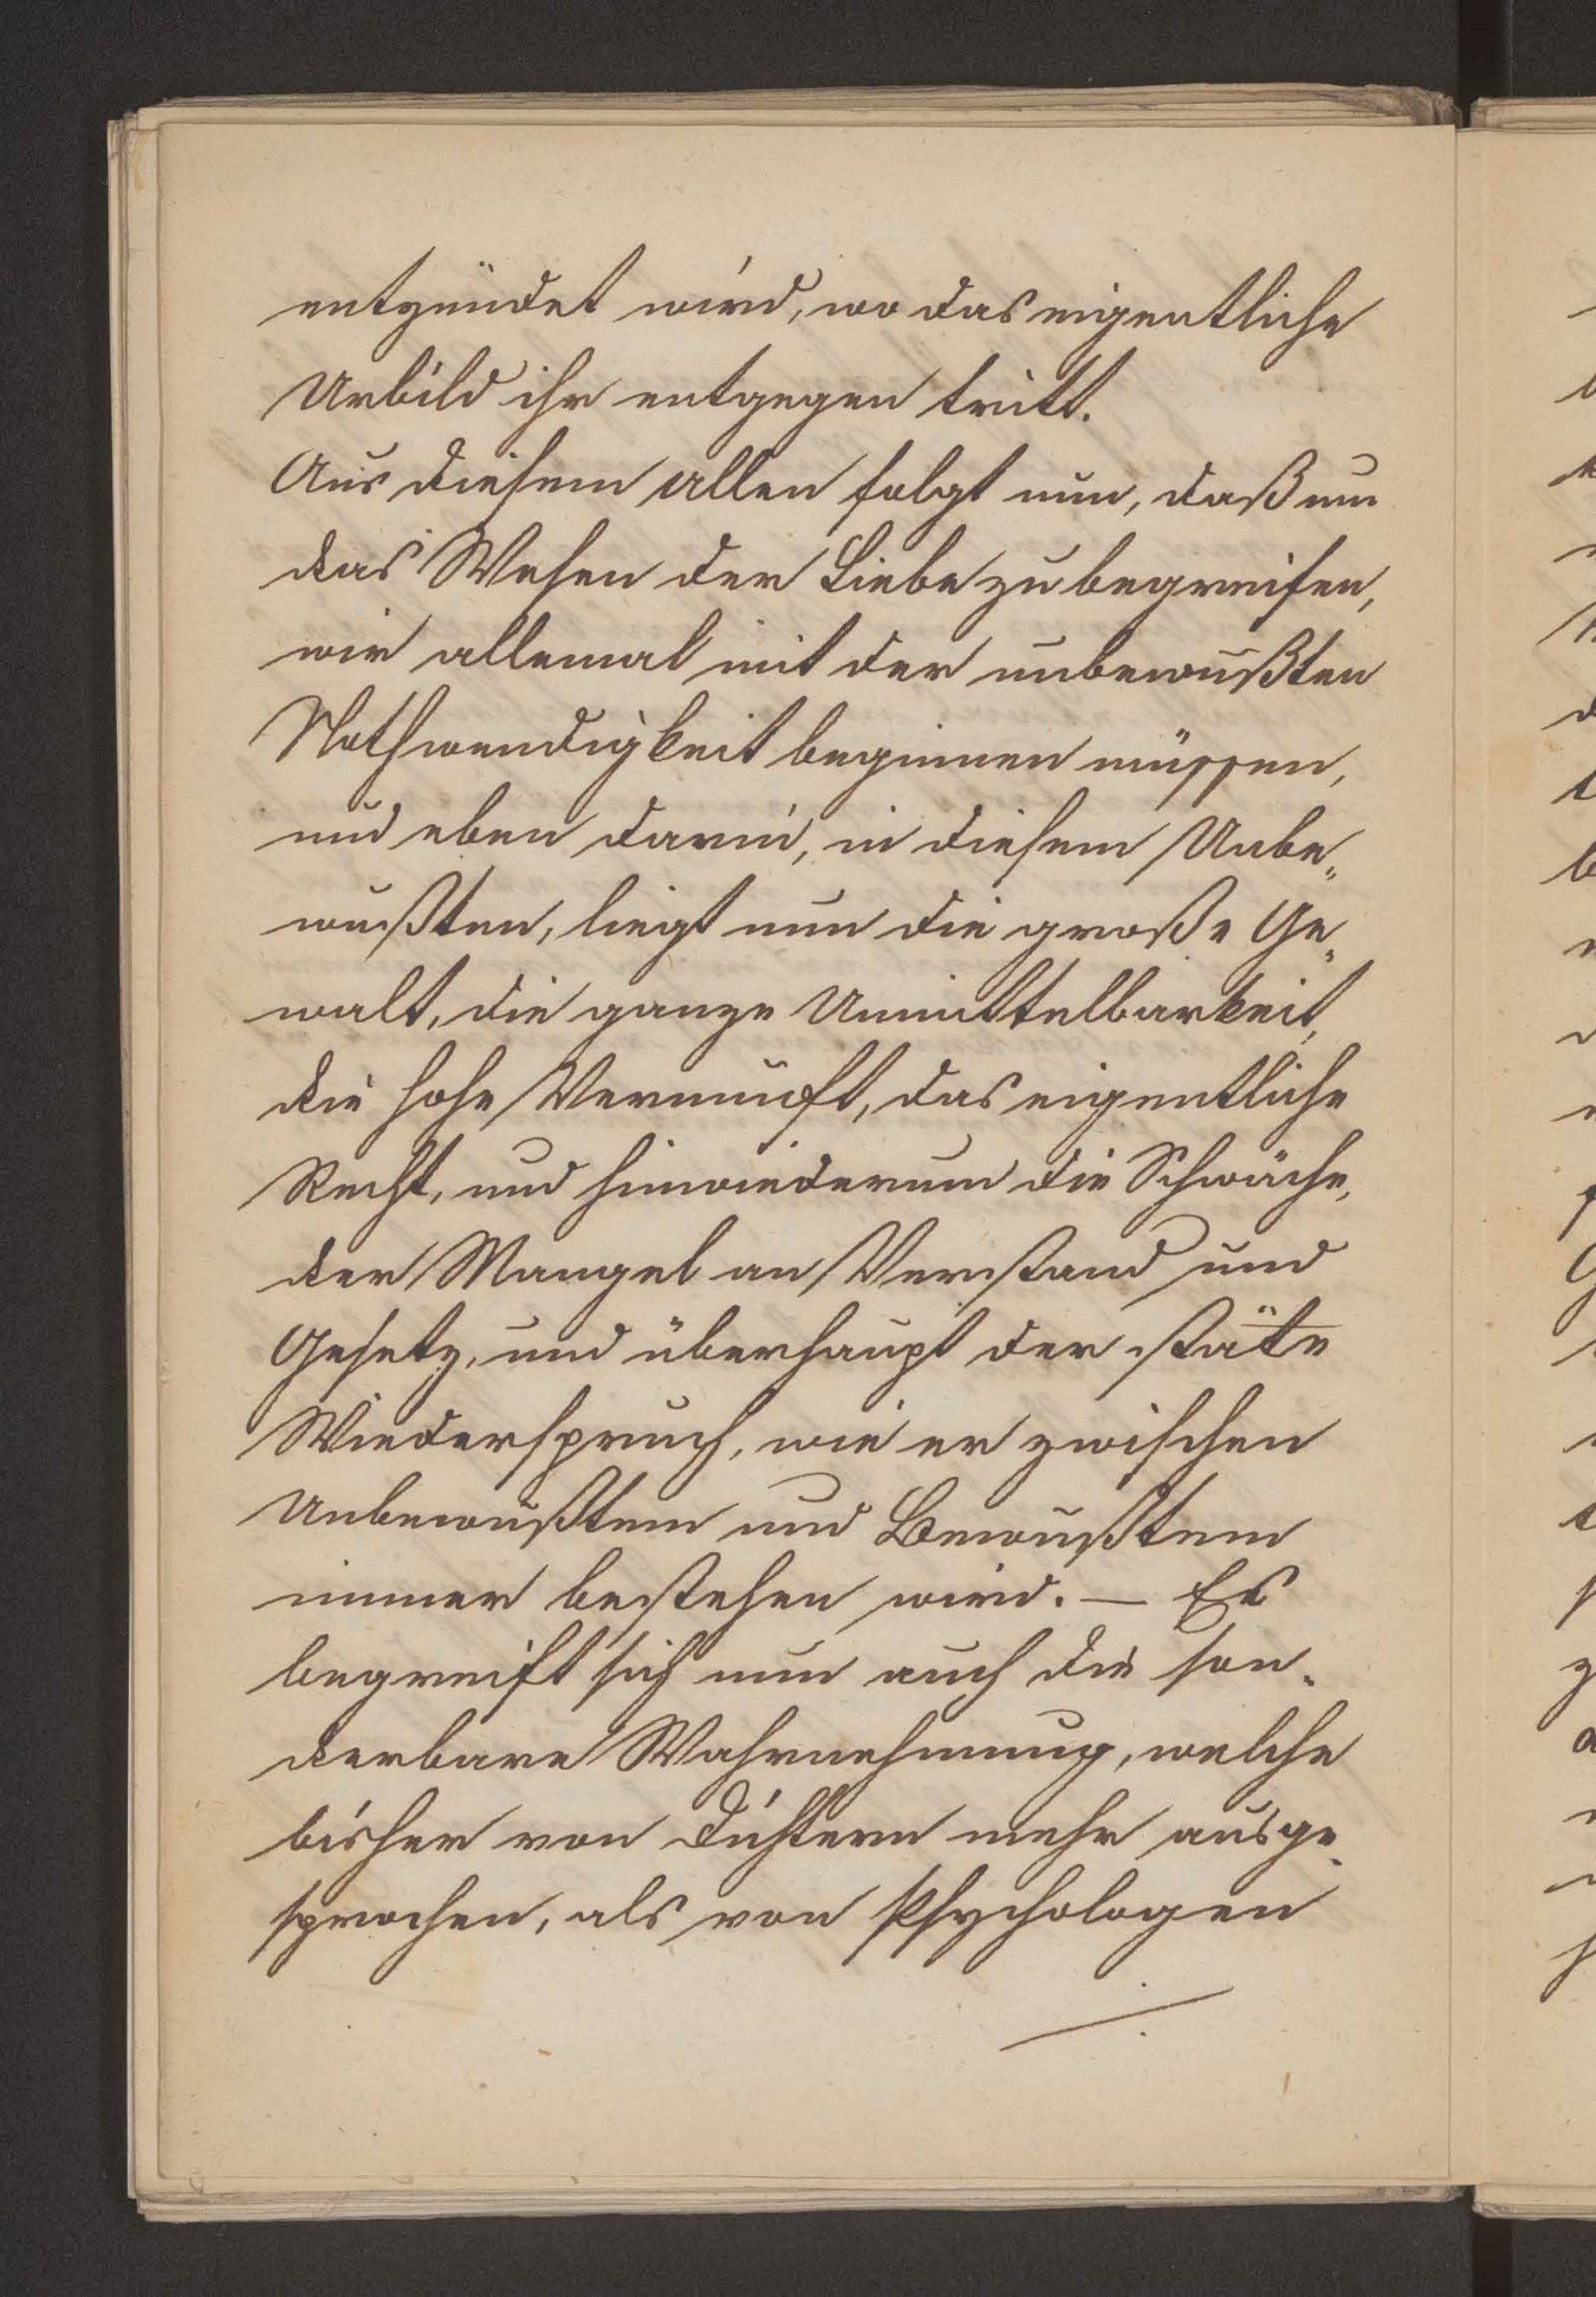 entzündet wird, wo das eigentliche
Urbild ihr entgegen tritt.
Aus diesem allen folgt nun, daß um
das Wesen der Liebe zu begreifen,
wir allemal mit der unbewußten
Nothwendigkeit beginnen müssen,
und eben darin, in diesem Unbe„
wußten, liegt nun die große Ge„
walt, die ganze Unmittelbarkeit,
die hohe Vernunft, das eigentliche
Recht, und hinwiederum die Schwäche,
der Mangel an Verstand und
Gesetz, und überhaupt der stäte
Wiederspruch, wie er zwischen
Unbewußtem und Bewußtem
immer bestehen wird. — Es
begreift sich nun auch die son„
derbare Wahrnehmung, welche
bisher von Dichtern mehr ausge„
sprochen, als von Psychologen